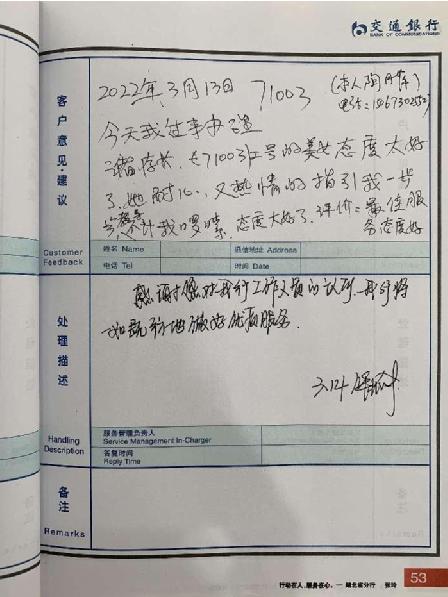 交通银行
BANK OF COMMUNICATIONS
客户意见·建议
Customer Feedback
2022年3月13日 71003
今天我过来办
(71003)工号的美女态度太好
了,她耐心,又热情的指引我一步
不计我啰嗦,态度太好了,评价:最佳服
务态度好
姓名 Name
通信地址 Address
电话 Tel
时间 Date
处理描述
Handling Description
感谢您对我行工作人员的认可,我行将
一如既往地做好优质服务.
3.14
服务管理负责人
Service Management In-Charger
答复时间
Reply Time
备注
Remarks
行动在人,服务在心。— 湖北省分行
53